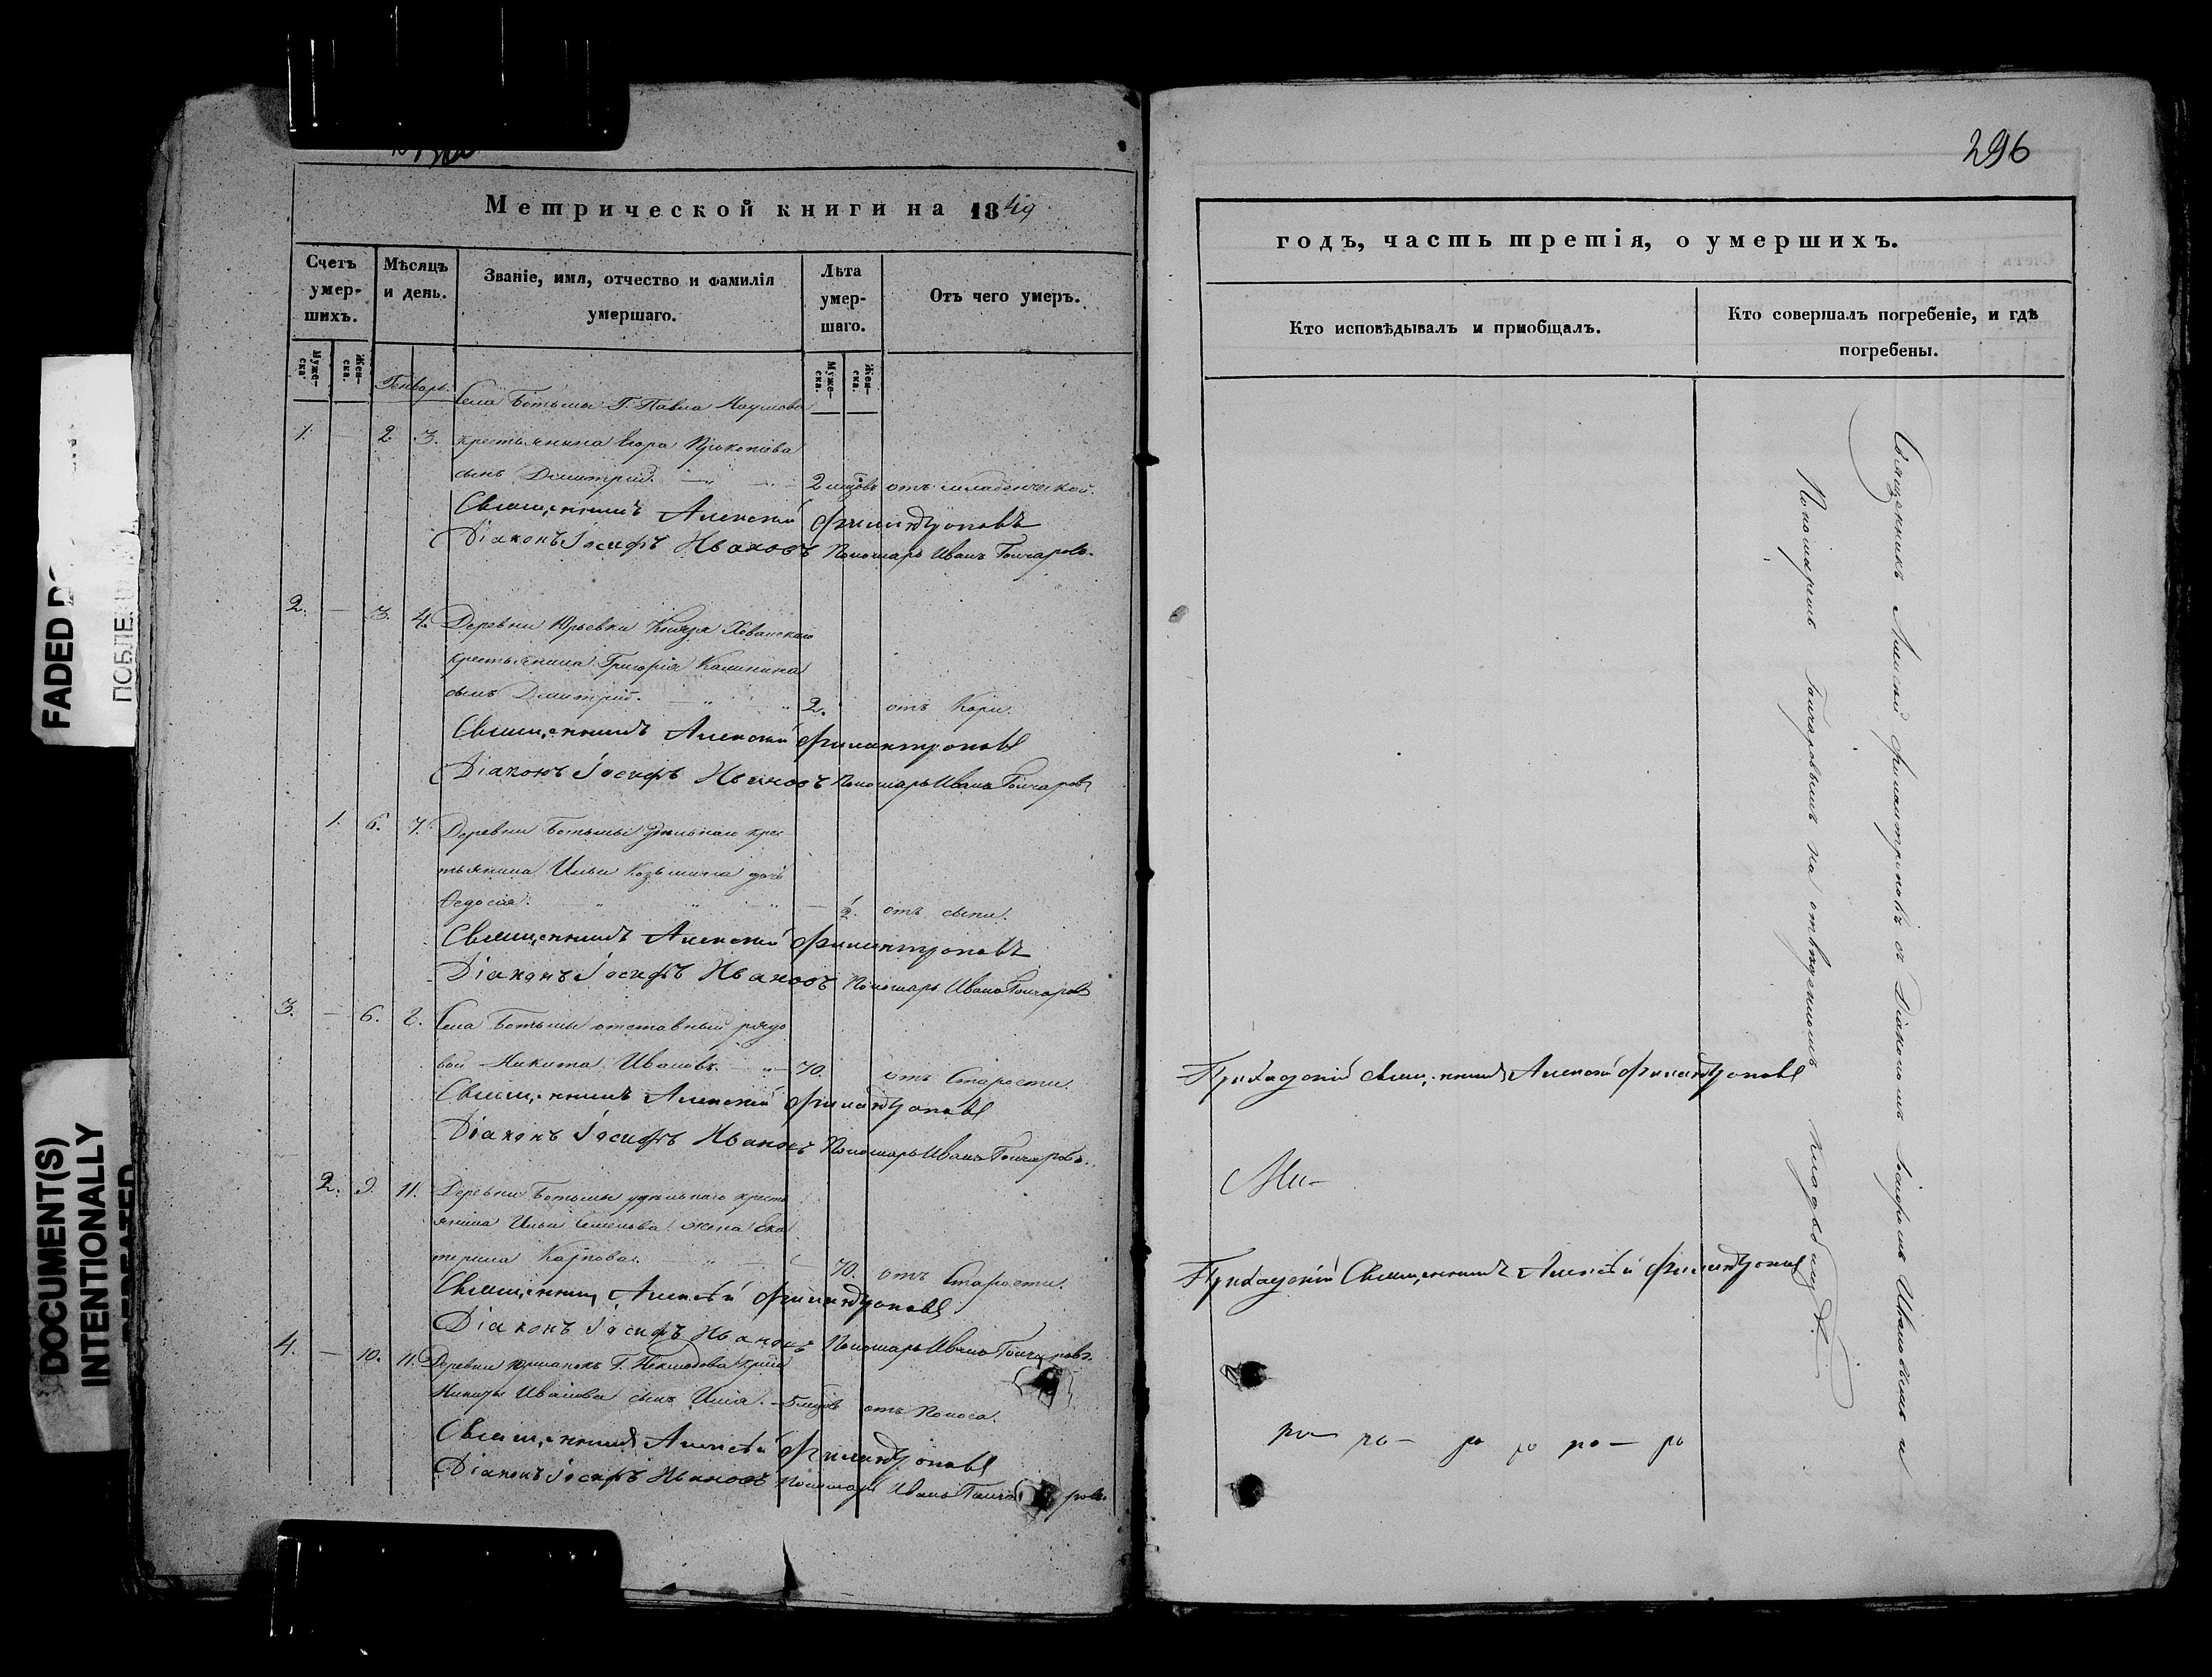 296
Метрической книги на 1849
годъ, часть третія, о умершихъ.
Счетъ умер-шихъ.
Муже-ска.
Жен-ска.
Мѣсяцъ и день.
Званіе, имя, отчество и фамилія умершаго.
Лѣта умер-шаго.
Муже-ска.
Жен-ска.
Отъ чего умеръ.
Кто исповѣдывалъ и пріобщалъ.
Кто совершалъ погребеніе, и гдѣ погребены.
Генварь.
Села Ботьмы Г. Павла Наумова
1. — 2. 3. крестьянина Егора Прокопіева
сынъ Димитрій. 2 мцовъ отъ младенческой.
Священникъ Алексій Филантроповъ
Діаконъ Іосифъ Ивановъ Пономарь Иванъ Гончаровъ.
2. — 3. 4. Деревни Юрьевки Князя Хованскаго
крестьянина Григорія Калинина
сынъ Димитрій. 2. отъ Кори.
Священникъ Алексій Филантроповъ
Діаконъ Іосифъ Ивановъ Пономарь Иванъ Гончаровъ
1. 6. 7. Деревни Ботьмы удѣльнаго крес
тьянина Ильи Козьмина дочь
Ѳедосія. 1/2. отъ сыпи.
Священникъ Алексій Филантроповъ
Діаконъ Іосифъ Ивановъ Пономарь Иванъ Гончаровъ
3. — 6. 8. Села Ботьмы отставный рядо
вой Никита Ивановъ. 70. отъ Старости.
Священникъ Алексій Филантроповъ
Діаконъ Іосифъ Ивановъ Пономарь Иванъ Гончаровъ.
2. 9. 11. Деревни Ботьмы удѣльнаго кресть
янина Ильи Семенова жена Ека
терина Карпова. 70. отъ Старости.
Священникъ Алексѣй Филантроповъ
Діаконъ Іосифъ Ивановъ Пономарь Иванъ Гончаровъ.
4. — 10. 11. Деревни Г.
Никиты Иванова сынъ Илія. 5 мцовъ отъ Поноса.
Священникъ Алексѣй Филантроповъ
Діаконъ Іосифъ Ивановъ Пономарь Иванъ Гончаровъ.
Приходскій священникъ Алексій Филантроповъ
Приходскій Священникъ Алексѣй Филантроповъ
Священникъ Алексій Филантроповъ съ Діакономъ Іосифомъ Ивановымъ и
Пономаремъ Гончаровымъ на отведенномъ кладбищѣ.
FADED
ПОБЛЕ
DOCUMENT(S)
INTENTIONALLY